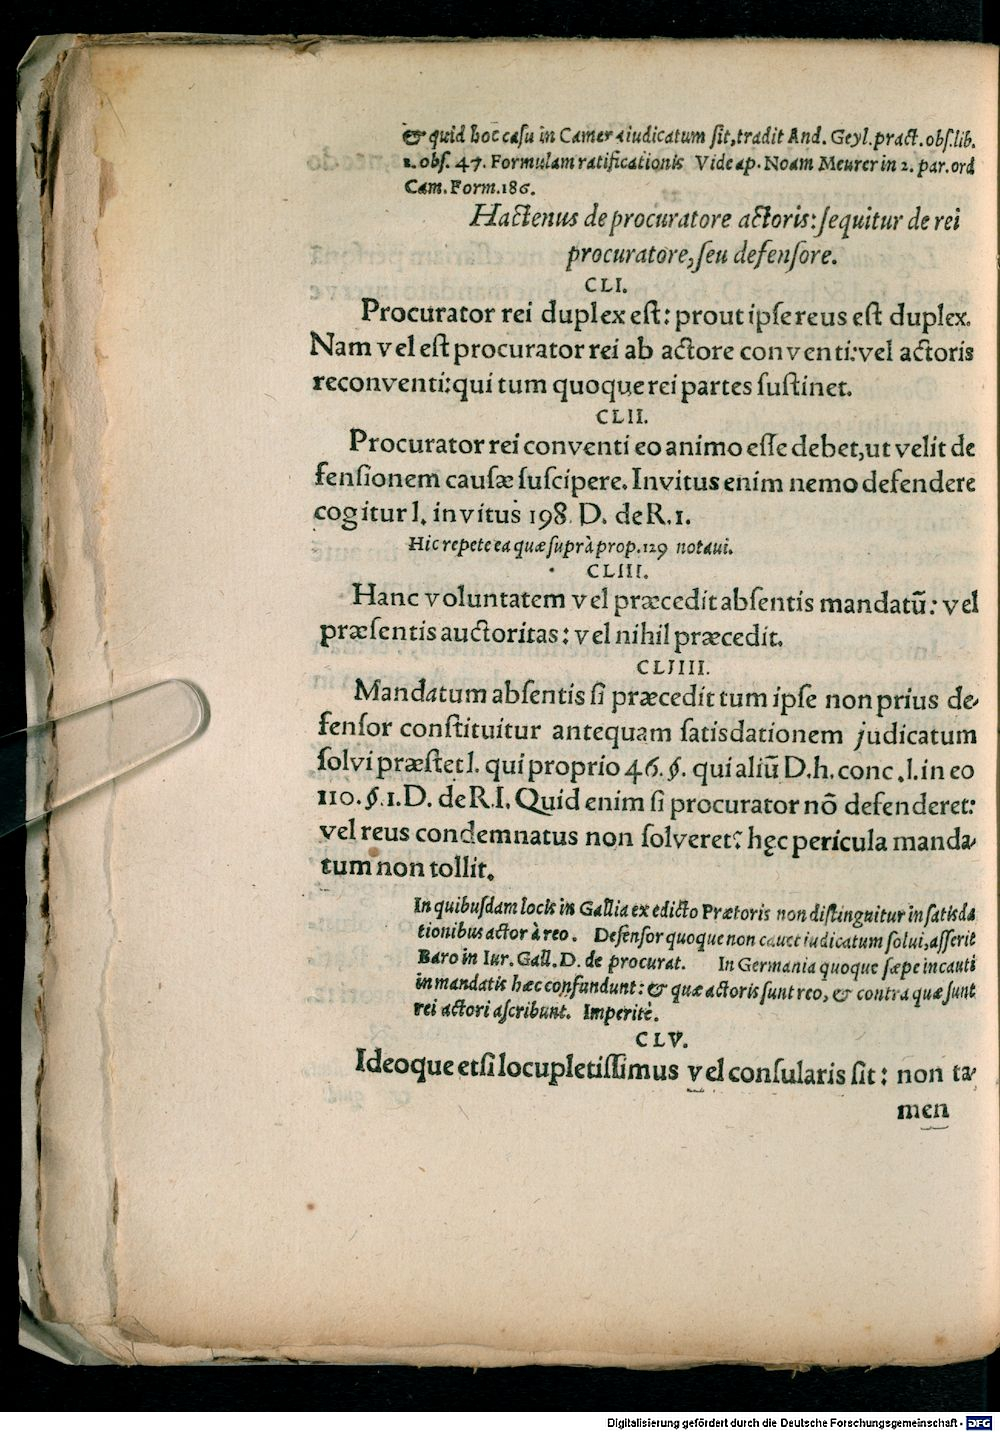 & quid hoc casu in Camera iudicatum ſit, tradit And. Geyl. pract. obſ. lib.
1. obſ. 47. Formulam ratificationis Vide ap. Noam Meurer in 2. par. ord
Cam. Form. 186.
Hactenus de procuratore actoris: ſequitur de rei
procuratore, ſeu defenſore.
CLI.
Procurator rei duplex eſt: prout ipſe reus eſt duplex.
Nam vel eſt procurator rei ab actore conventi: vel actoris
reconventi: qui tum quoque rei partes ſuſtinet.
CLII.
Procurator rei conventi eo animo eſſe debet, ut velit de
fenſionem cauſæ ſuſcipere. Invitus enim nemo defendere
cogitur l. invitus 198. D. de R. I.
Hic repete ea quæ ſuprà prop. 129 notavi.
CLIII.
Hanc voluntatem vel præcedit abſentis mandatū: vel
præſentis auctoritas: vel nihil præcedit.
CLJIII.
Mandatum abſentis ſi præcedit tum ipſe non prius de-
fenſor conſtituitur antequam ſatisdationem judicatum
ſolvi præſtet l. qui proprio 46. §. qui aliū D. h. conc. l. in eo
110. §. 1. D. de R. I. Quid enim ſi procurator nō defenderet:
vel reus condemnatus non ſolveret? hęc pericula manda-
tum non tollit.
In quibuſdam locis in Gallia ex edicto Prætoris non diſtinguitur in ſatisda
tionibus actor à reo. Defenſor quoque non cauet iudicatum ſolui, aſſerit
Baro in Iur. Gall. D. de procurat. In Germania quoque ſæpe incauti
in mandatis hæc confundunt: & quæ actoris ſunt reo, & contra quæ ſunt
rei actori aſcribunt. Imperitè.
CLV.
Ideoque etſi locupletiſſimus vel conſularis ſit: non ta-
men
Digitalisierung gefördert durch die Deutsche Forschungsgemeinschaft - DFG